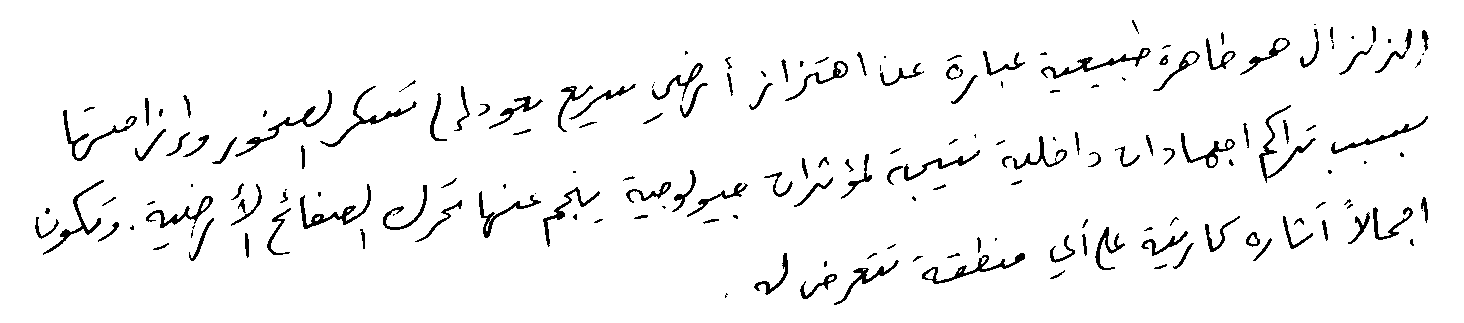 الزلزال هو ظاهرة طبيعية عبارة عن اهتزاز أرضي سريع يعود إلى تكسر الصخور وإزاحتها
بسبب تراكم اجهادات داخلية نتيجة لمؤثرات جيولوجية ينجم عنها تحرك الصفائح الأرضية. وتكون
اجمالاً آثاره كارثية على أي منطقة تتعرض له.